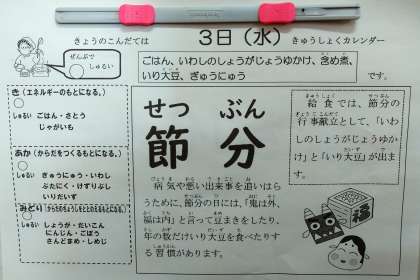 きょうのこんだては
3日（水）
きゅうしょくカレンダー
ぜんぶで
しゅるい
ごはん、いわしのしょうがじょうゆかけ、含め煮、
いり大豆、ぎゅうにゅう
です。
き（エネルギーのもとになる。）
しゅるい
ごはん・さとう
じゃがいも
あか（からだをつくるもとになる。）
しゅるい
ぎゅうにゅう・いわし
ぶたにく・けずりぶし
いりだいず
みどり（からだのちょうしをととのえるもとになる。）
しゅるい
しょうが・だいこん
にんじん・ごぼう
さんどまめ・しめじ
せつ ぶん
節分
病気や悪い出来事を追いはら
うために、節分の日には、「鬼は外、
福は内」と言って豆まきをしたり、
年の数だけいり大豆を食べたりす
る習慣があります。
給食では、節分の
行事献立として、「いわ
しのしょうがじょうゆか
け」と「いり大豆」が出ま
す。
福